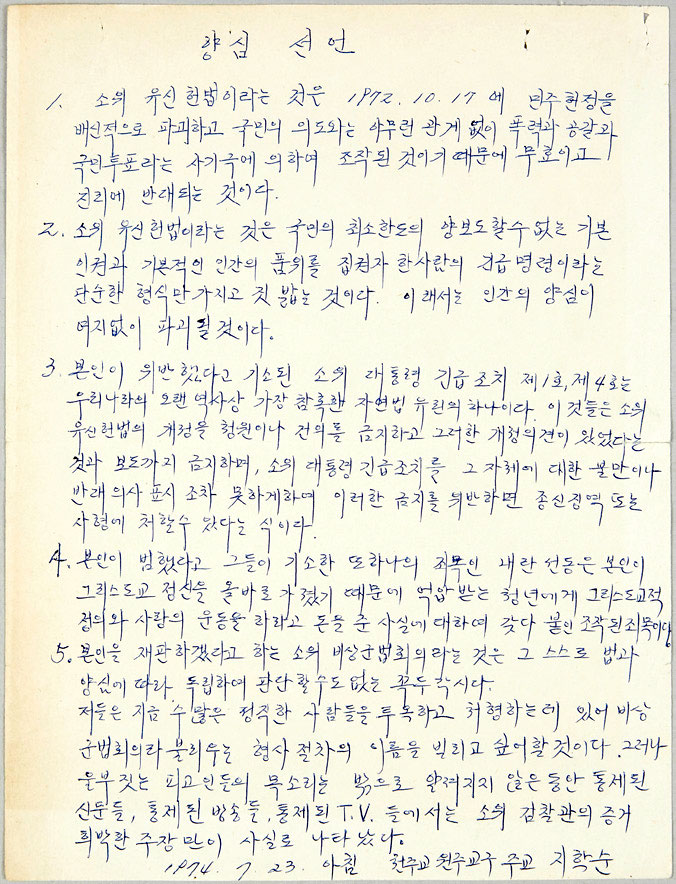 양심 선언
1. 소위 유신 헌법이라는 것은 1972. 10. 17 에 민주 헌정을
배신적으로 파괴하고 국민의 의도와는 아무런 관계 없이 폭력과 공갈과
국민투표라는 사기극에 의하여 조작된 것이기 때문에 무효이고
진리에 반대되는 것이다.
2. 소위 유신헌법이라는 것은 국민의 최소한도의 양보도할수없는 기본
인권과 기본적인 인간의 품위를 집권자 한사람의 긴급 명령이라는
단순한 형식만 가지고 짓 밟는 것이다. 이래서는 인간의 양심이
여지없이 파괴될 것이다.
3. 본인이 위반했다고 기소된 소위 대통령 긴급조치 제1호, 제4호는
우리나라의 오랜 역사상 가장 참혹한 자연법 유린의 하나이다. 이것들은 소위
유신헌법의 개정을 청원이나 건의를 금지하고 그러한 개정의견이 있었다는
것과 보도까지 금지하며, 소위 대통령 긴급조치를 그 자체에 대한 불만이나
반대 의사 표시 조차 못하게하며 이러한 금지를 위반하면 종신징역 또는
사형에 처할수 있다는 식이다.
4. 본인이 범했다고 그들이 기소한 또하나의 죄목인 내란 선동은 본인이
그리스도교 정신을 올바로 가졌기 때문에 억압 받는 청년에게 그리스도교적
정의와 사랑의 운동을 하라고 돈을 준 사실에 대하여 갖다 붙인 조작된 죄목이다
5. 본인을 재판하겠다고 하는 소위 비상군법회의라는 것은 그 스스로 법과
양심에 따라 독립하여 판단 할수도 없는 꼭두각시다.
저들은 지금 수 많은 정직한 사람들을 투옥하고 처형하는데 있어 비상
군법회의라 불리우는 형사 절차의 이름을 빌리고 싶어할 것이다. 그러나
울부짖는 피고인들의 목소리는 밖으로 알려지지 않은 동안 통제된
신문들, 통제된 방송들, 통제된 T.V. 들에서는 소위 검찰관의 증거
희박한 주장만이 사실로 나타났다.
1974. 7. 23. 아침 천주교 원주교구 주교 지학순